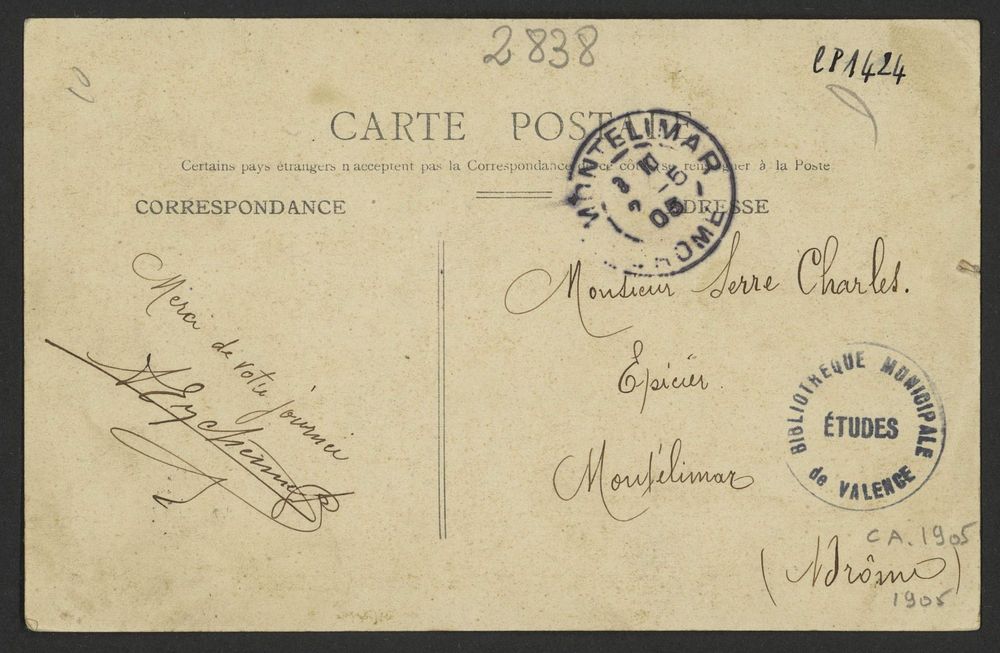 2838
CP1424
CARTE POSTALE
Certains pays étrangers n'acceptent pas la Correspondance de ce côté (se renseigner à la Poste
CORRESPONDANCE
ADRESSE
MONTELIMAR
DROME
10 -5
05
Merci de votre journée
Monsieur Serre Charles.
Epicier.
Montélimar
(Drôme)
BIBLIOTHEQUE MUNICIPALE
ÉTUDES
de VALENCE
CA. 1905
1905